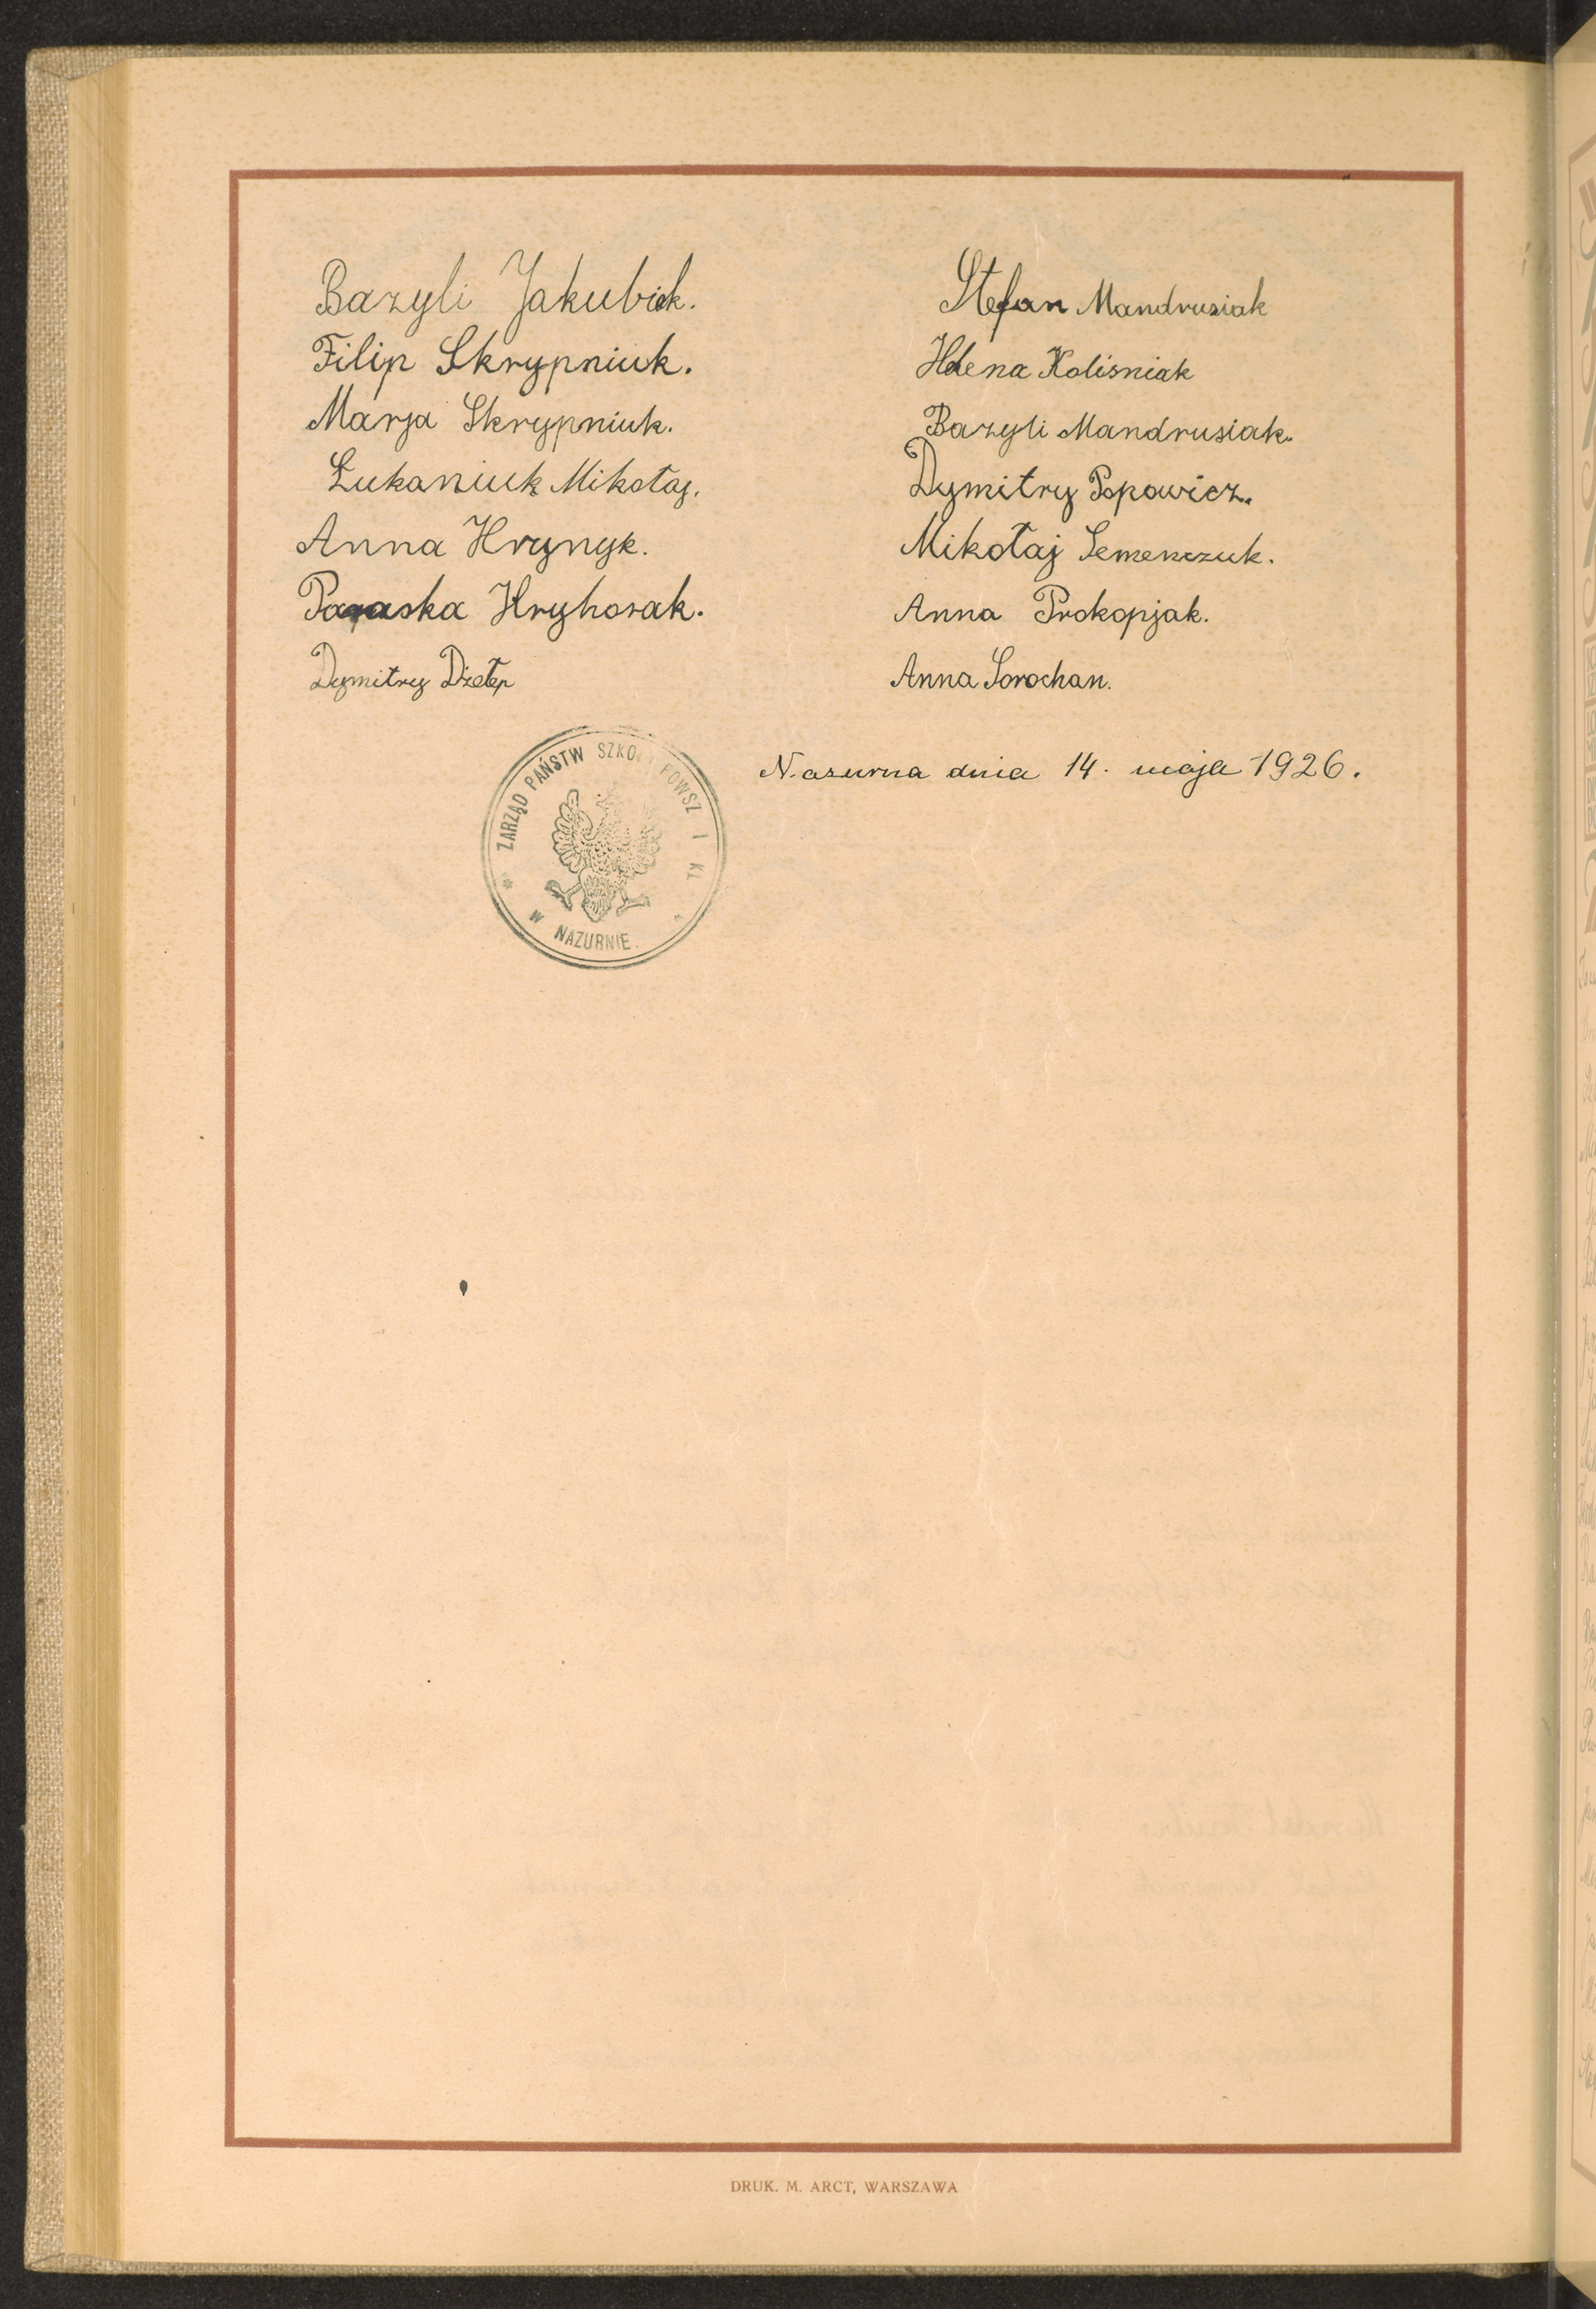 Bazyli Jakubiak.
Filip Skrypniuk.
Marja Skrypniuk.
Łukaniuk Mikołaj.
Anna Hrynyk.
Paraska Hryhorak.
Dymitry Dżełep
Stefan Mandrusiak
Helena Kolisniak
Bazyli Mandrusiak.
Dymitry Popowicz.
Mikołaj Semenczuk.
Anna Prokopjak.
Anna Sorochan.
Nazurna dnia 14. maja 1926.
ZARZĄD PAŃSTW SZKOŁ POWSZ I KL
W NAZURNIE.
DRUK. M. ARCT, WARSZAWA